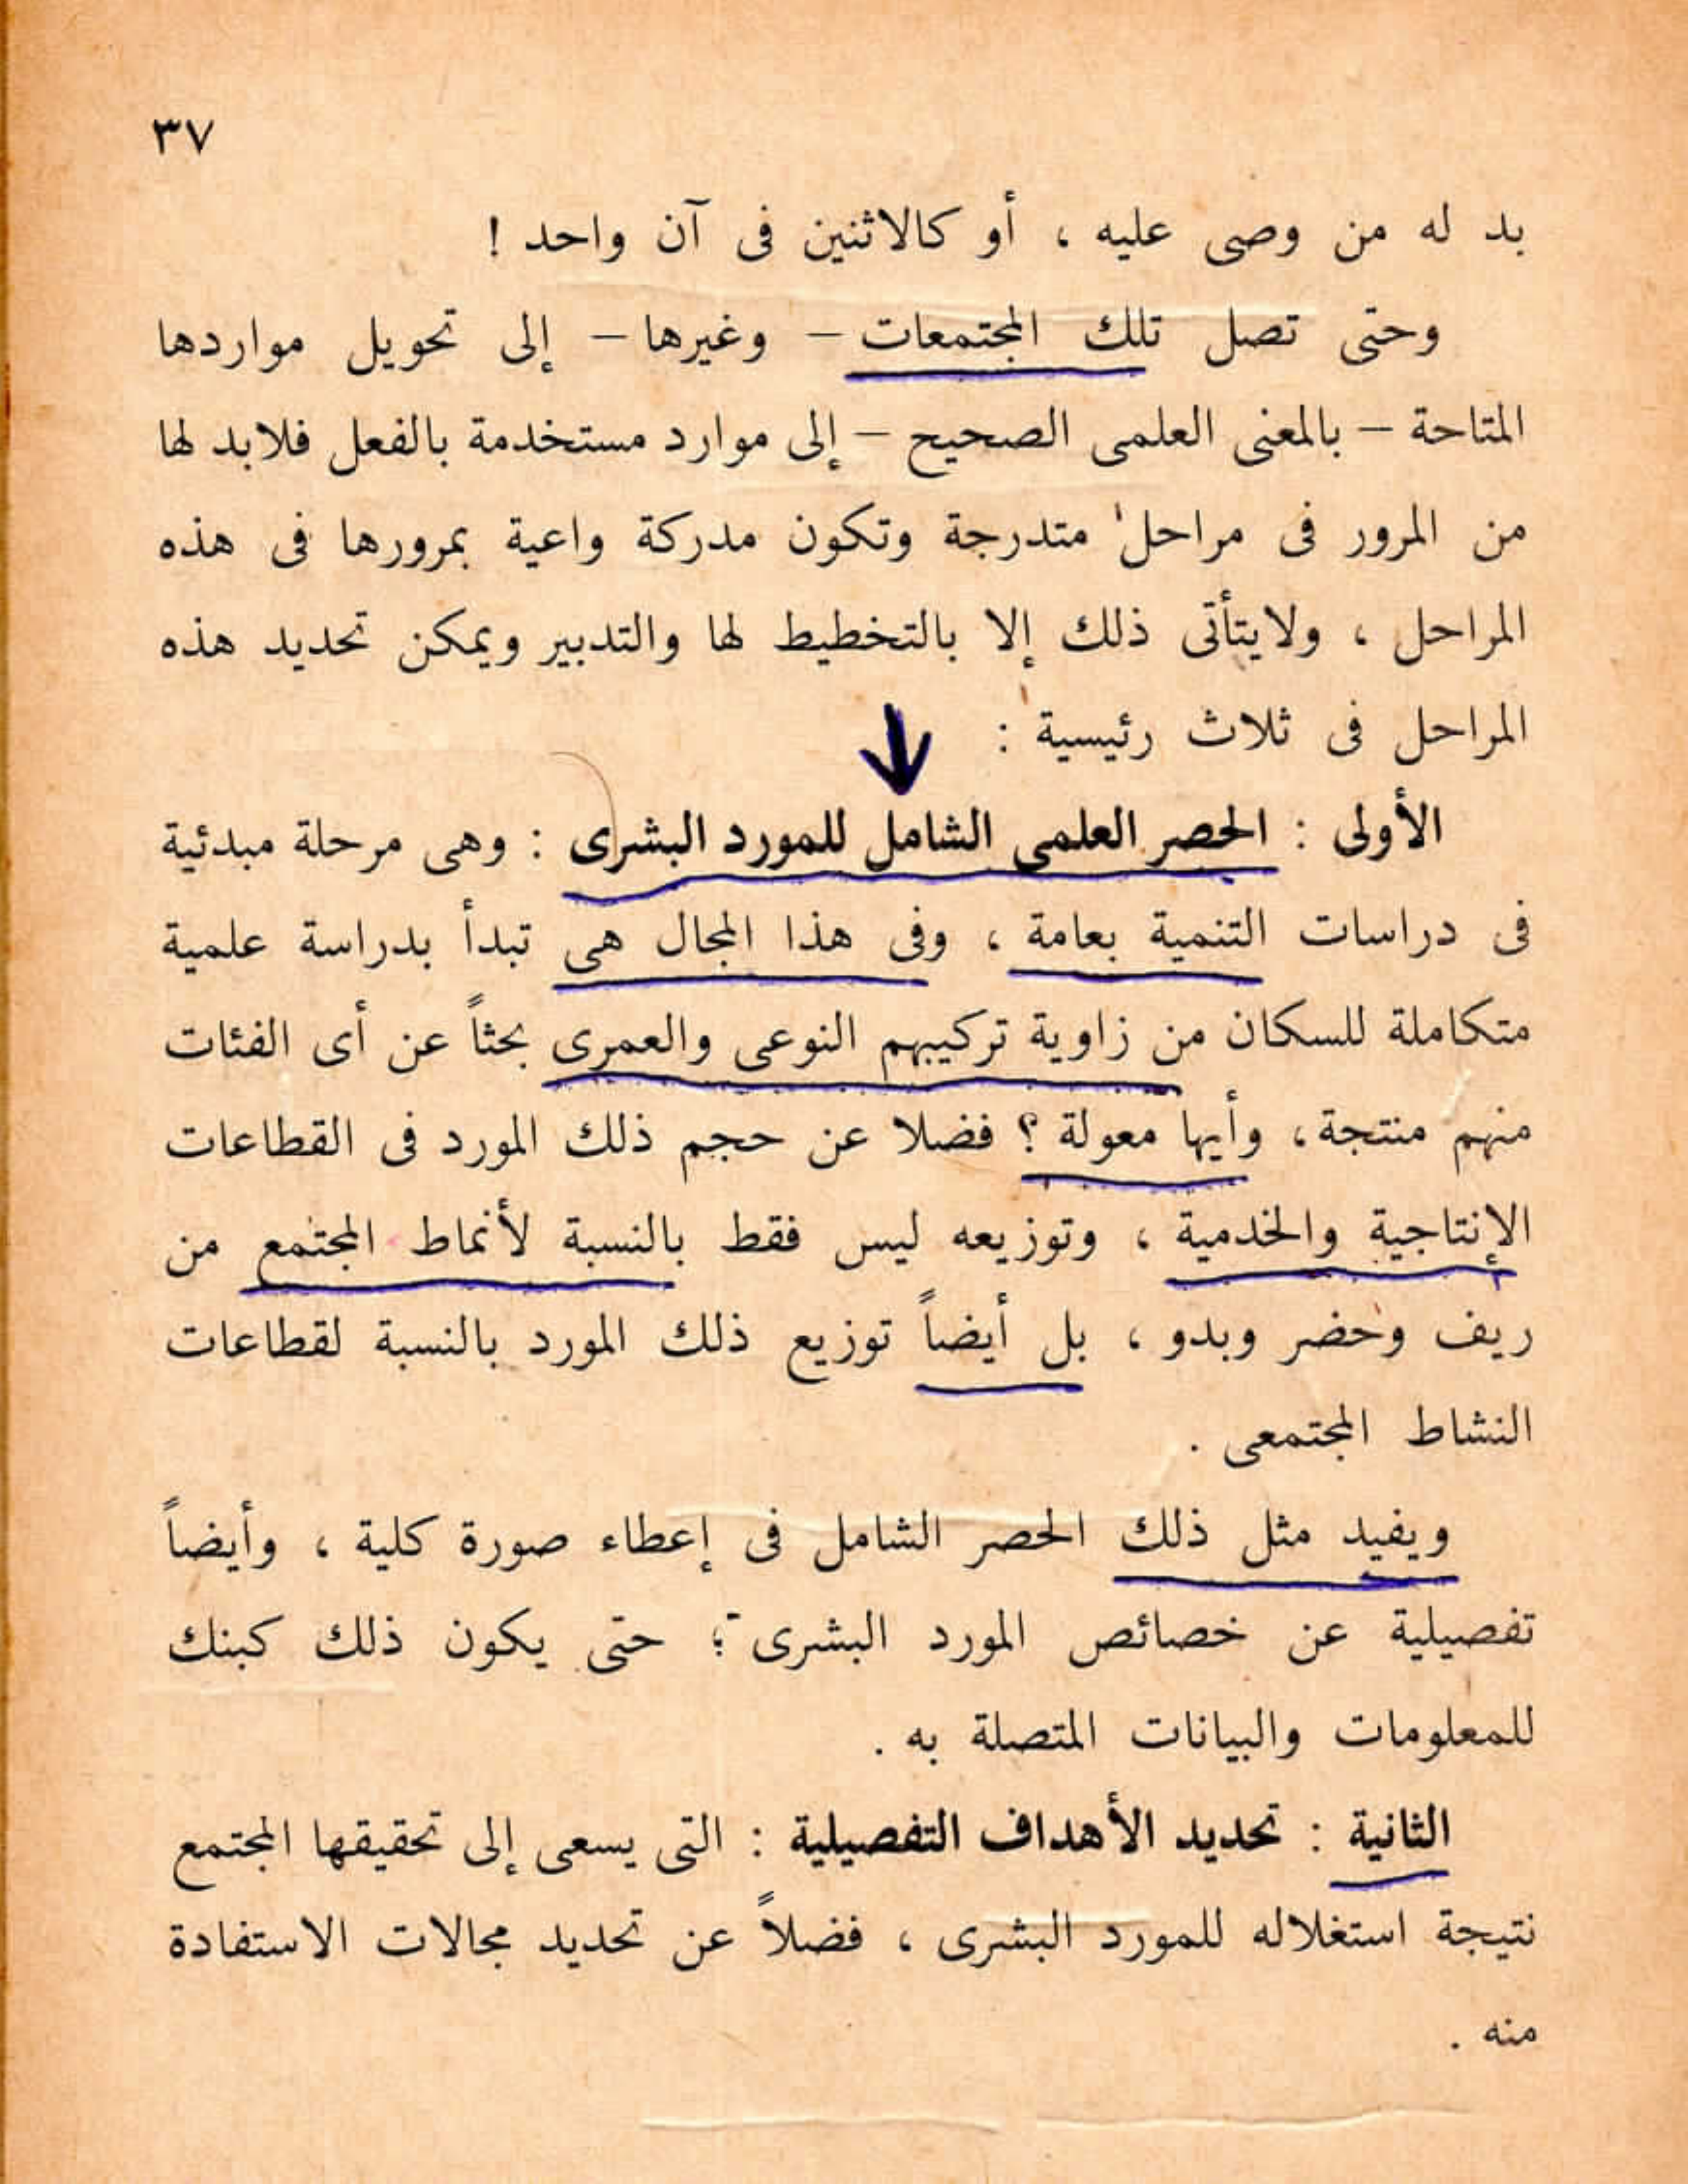 ٣٧
بد له من وصى عليه ، أو كالاثنين فى آن واحد !
وحتى تصل تلك المجتمعات – وغيرها – إلى تحويل مواردها
المتاحة – بالمعنى العلمى الصحيح – إلى موارد مستخدمة بالفعل فلابد لها
من المرور فى مراحل متدرجة وتكون مدركة واعية بمرورها فى هذه
المراحل ، ولايتأتى ذلك إلا بالتخطيط لها والتدبير ويمكن تحديد هذه
المراحل فى ثلاث رئيسية :
الأولى : الحصر العلمى الشامل للمورد البشرى : وهى مرحلة مبدئية
فى دراسات التنمية بعامة ، وفى هذا المجال هى تبدأ بدراسة علمية
متكاملة للسكان من زاوية تركيبهم النوعى والعمرى بحثاً عن أى الفئات
منهم منتجة ، وأيها معولة ؟ فضلا عن حجم ذلك المورد فى القطاعات
الإنتاجية والخدمية ، وتوزيعه ليس فقط بالنسبة لأنماط المجتمع من
ريف وحضر وبدو ، بل أيضاً توزيع ذلك المورد بالنسبة لقطاعات
النشاط المجتمعى .
ويفيد مثل ذلك الحصر الشامل فى إعطاء صورة كلية ، وأيضاً
تفصيلية عن خصائص المورد البشرى ؛ حتى يكون ذلك كبنك
للمعلومات والبيانات المتصلة به .
الثانية : تحديد الأهداف التفصيلية : التى يسعى إلى تحقيقها المجتمع
نتيجة استغلاله للمورد البشرى ، فضلاً عن تحديد مجالات الاستفادة
منه .